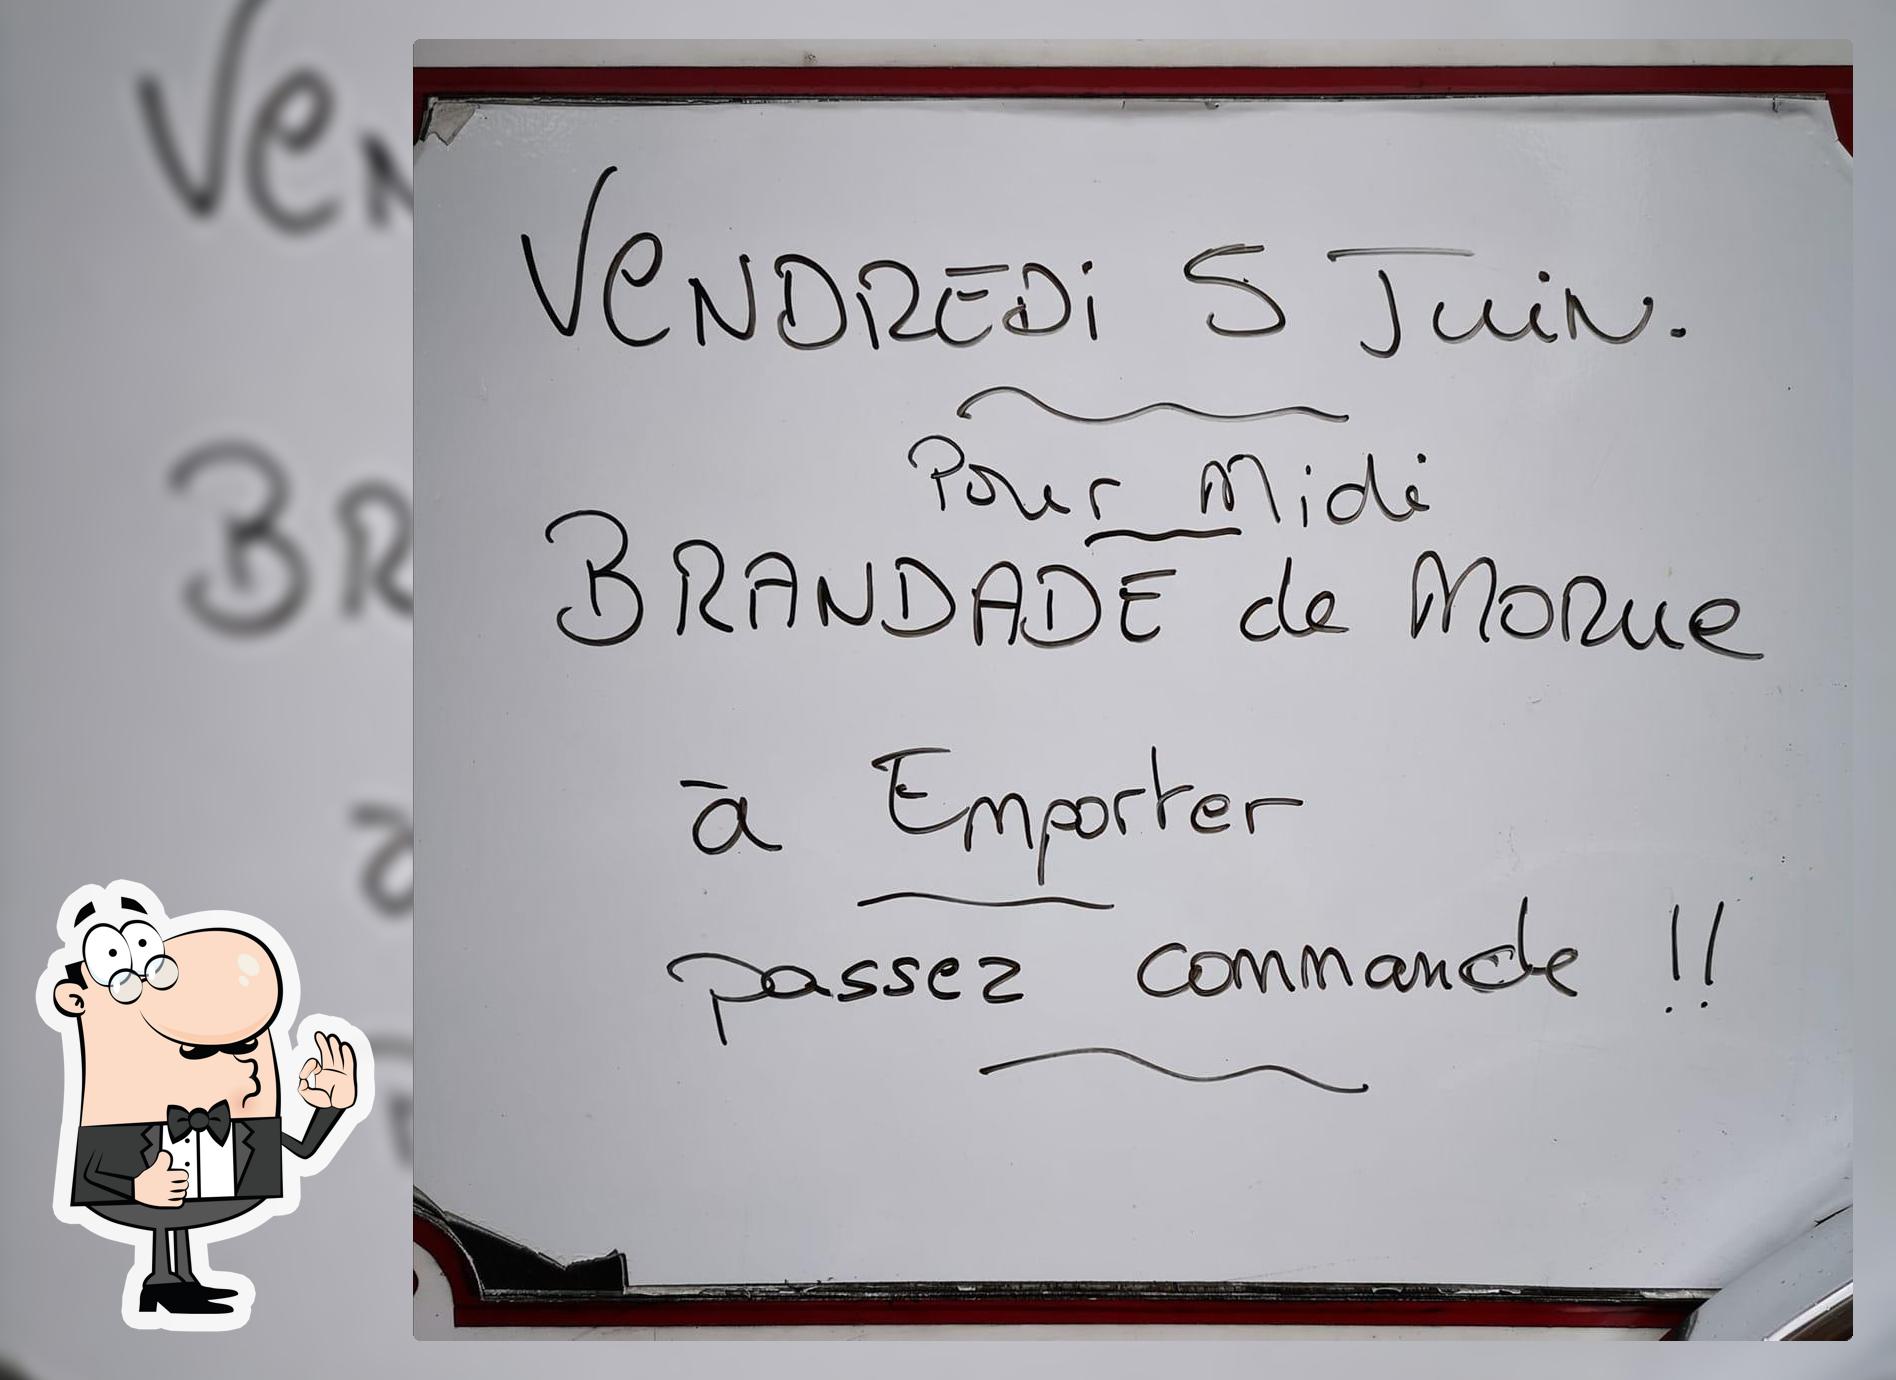 VENDREDi 5 Juin.
Pour Midi
BRANDADE de MORue
à Emporter
passez commande !!